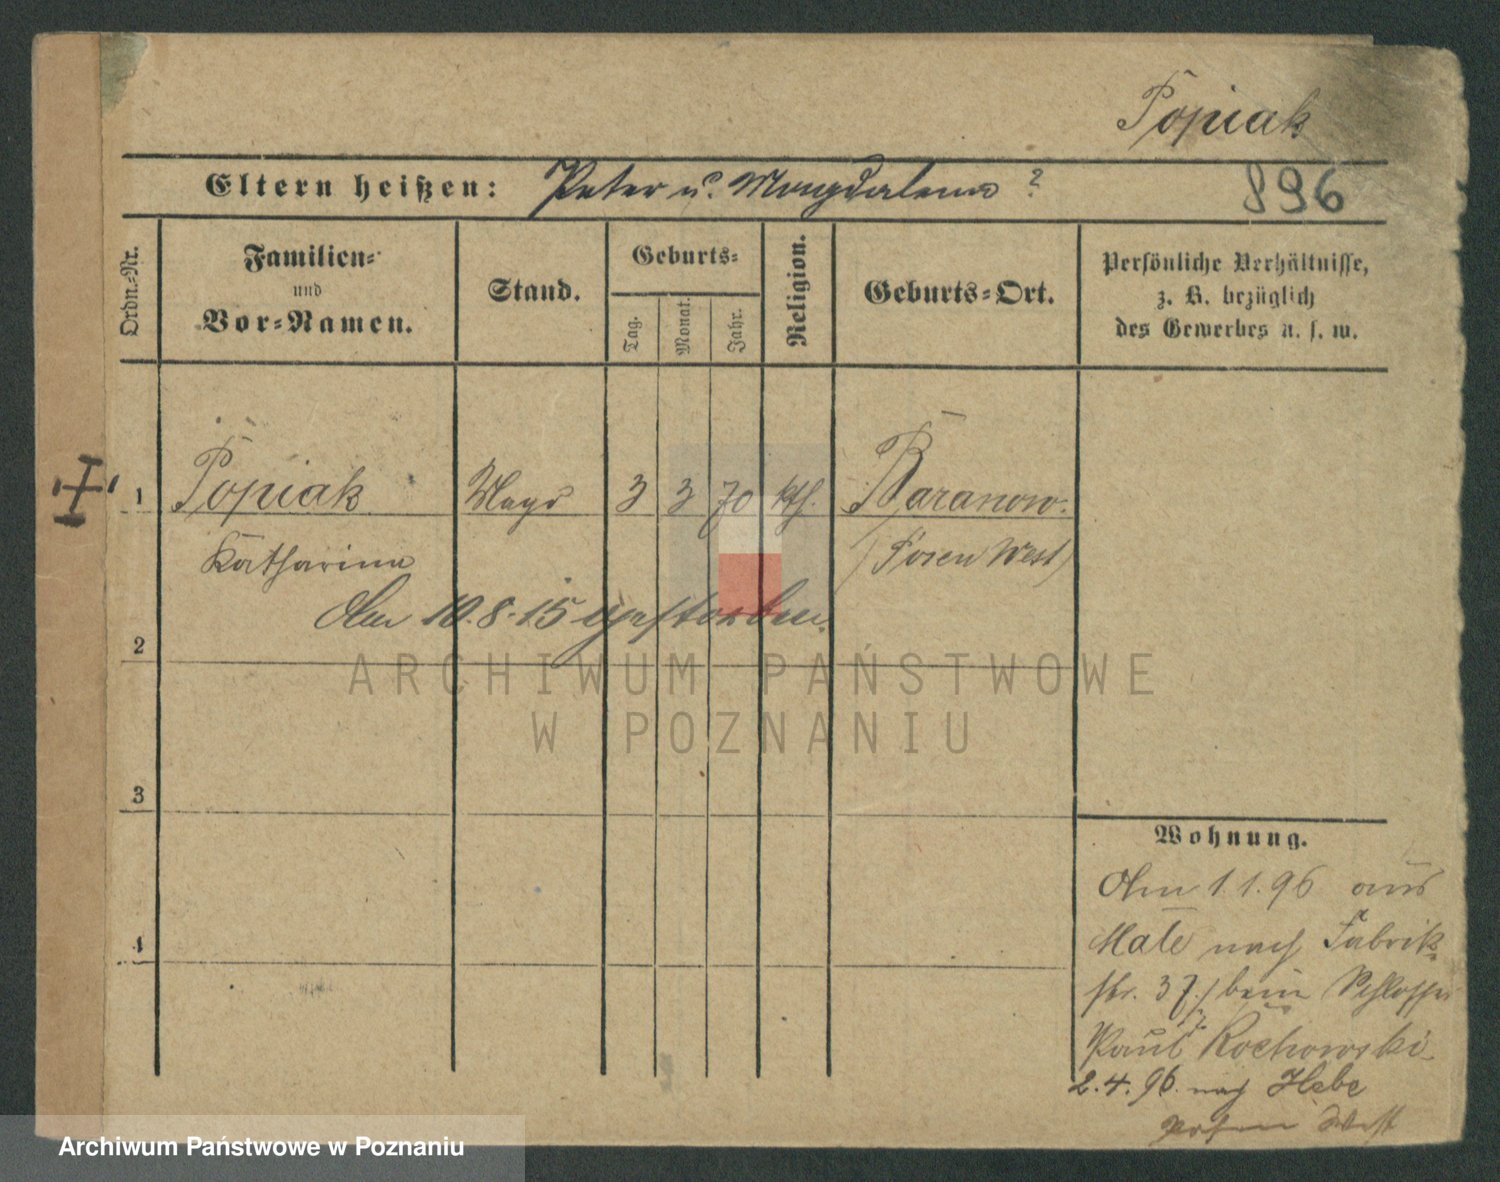 Popiak
Eltern heißen: Peter u. Magdalena ?
896
Ordn.-Nr.
Familien-
und
Vor-Namen.
Stand.
Geburts-
Tag.
Monat.
Jahr.
Religion.
Geburts-Ort.
Persönliche Verhältnisse,
z. B. bezüglich
des Gewerbes u. s. w.
1 Popiak Magd 3 3 70 kth. Baranow.
Katharina (Posen West)
Am 10.8.15 gestorben.
2
3
4
Wohnung.
Am 1.1.96 aus
nach Fabrik-
str. 37. beim Schlosser
Paul Rochowski
2.4.96. nach
Posen West
ARCHIWUM PAŃSTWOWE
W POZNANIU
Archiwum Państwowe w Poznaniu